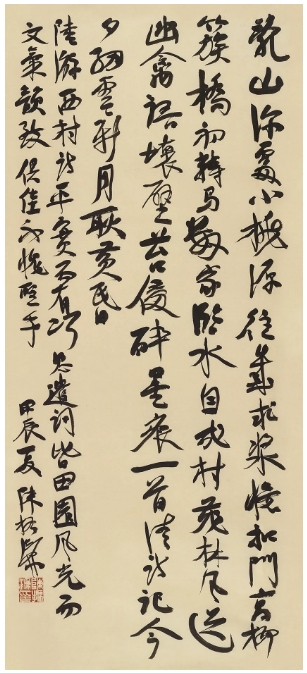 亂山深處小桃源往歲求漿憶扣門高柳
簇橋初轉馬數家臨水自成村茂林風送
幽禽語壞壁苔侵醉墨痕一首清詩記今
夕細雲新月耿黃昏
陸游西村詩平實而有巧思遣詞皆田園風光而
文氣韻致俱佳不愧聖手 甲辰夏 陳振濂